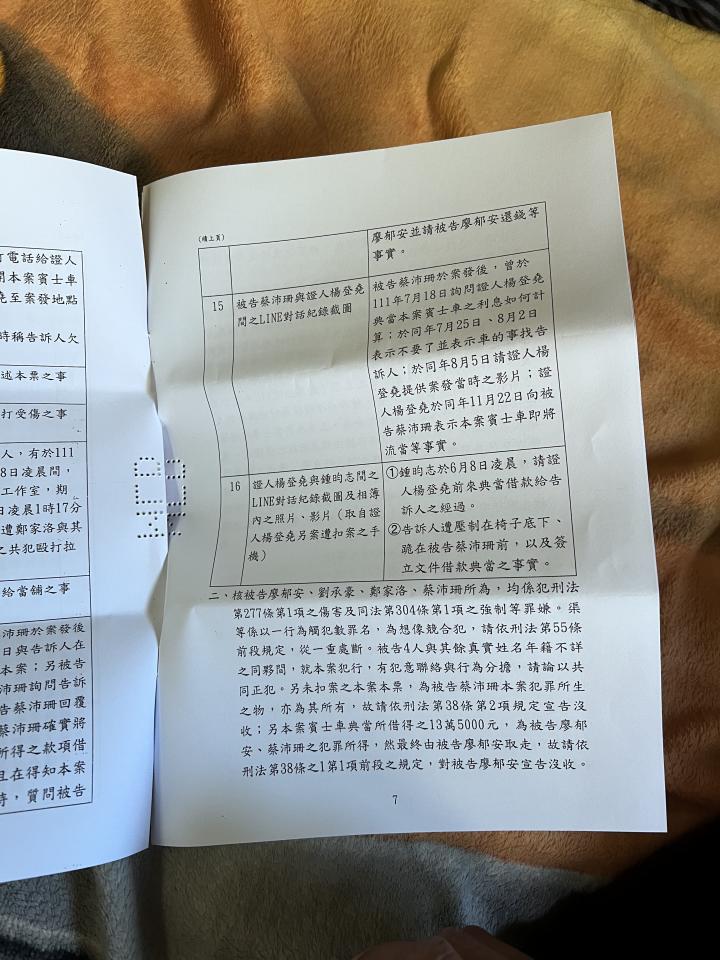 打電話給證人
開本案賓士車
堯至案發地點
時稱告訴人欠
述本票之事
打受傷之事
人，有於111
8日凌晨間，
工作室，期
日凌晨1時17分
遭鄭家洛與其
之共犯毆打拉
給當舖之事
沛珊於案發後
日與告訴人在
本案；另被告
沛珊詢問告訴
告蔡沛珊回覆
蔡沛珊確實將
所得之款項借
且在得知本案
時，質問被告
(續上頁)
廖郁安並請被告廖郁安還錢等
事實。
15
被告蔡沛珊與證人楊登堯
間之LINE對話紀錄截圖
被告蔡沛珊於案發後，曾於
111年7月18日詢問證人楊登堯
典當本案賓士車之利息如何計
算；於同年7月25日、8月2日
表示不要了並表示車的事找告
訴人；於同年8月5日請證人楊
登堯提供案發當時之影片；證
人楊登堯於同年11月22日向被
告蔡沛珊表示本案賓士車即將
流當等事實。
16
證人楊登堯與鍾昀志間之
LINE對話紀錄截圖及相簿
內之照片、影片（取自證
人楊登堯另案遭扣案之手
機）
①鍾昀志於6月8日凌晨，請證
人楊登堯前來典當借款給告
訴人之經過。
②告訴人遭壓制在椅子底下、
跪在被告蔡沛珊前，以及簽
立文件借款與典當之事實。
二、核被告廖郁安、劉承豪、鄭家洛、蔡沛珊所為，均係犯刑法
第277條第1項之傷害及同法第304條第1項之強制等罪嫌。渠
等係以一行為觸犯數罪名，為想像競合犯，請依刑法第55條
前段規定，從一重處斷。被告4人與其餘真實姓名年籍不詳
之同夥間，就本案犯行，有犯意聯絡與行為分擔，請論以共
同正犯。另未扣案之本案本票，為被告蔡沛珊本案犯罪所生
之物，亦為其所有，故請依刑法第38條第2項規定宣告沒
收；另本案賓士車典當所借得之13萬5000元，為被告廖郁
安、蔡沛珊之犯罪所得，然最終由被告廖郁安取走，故請依
刑法第38條之1第1項前段之規定，對被告廖郁安宣告沒收。
7